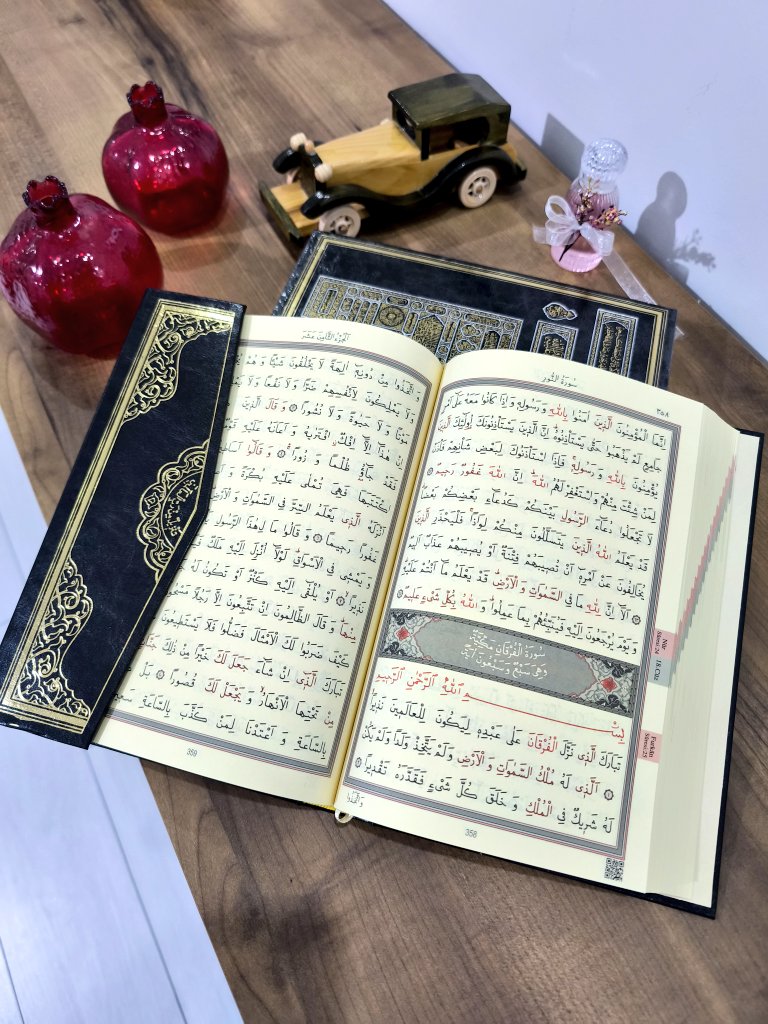 ٣٥٨
سُورَةُ النُّورِ
اِنَّمَا الْمُؤْمِنُونَ الَّذ۪ينَ اٰمَنُوا بِاللّٰهِ وَ رَسُولِه۪ وَ اِذَا كَانُوا مَعَهُ عَلٰٓى اَمْرٍ
جَامِعٍ لَمْ يَذْهَبُوا حَتّٰى يَسْتَاْذِنُوهُ اِنَّ الَّذ۪ينَ يَسْتَاْذِنُونَكَ اُولٰٓئِكَ الَّذ۪ينَ
يُؤْمِنُونَ بِاللّٰهِ وَ رَسُولِه۪ فَاِذَا اسْتَاْذَنُوكَ لِبَعْضِ شَاْنِهِمْ فَاْذَنْ
لِمَنْ شِئْتَ مِنْهُمْ وَاسْتَغْفِرْ لَهُمُ اللّٰهَ اِنَّ اللّٰهَ غَفُورٌ رَح۪يمٌ
لَا تَجْعَلُوا دُعَٓاءَ الرَّسُولِ بَيْنَكُمْ كَدُعَٓاءِ بَعْضِكُمْ بَعْضًا
قَدْ يَعْلَمُ اللّٰهُ الَّذ۪ينَ يَتَسَلَّلُونَ مِنْكُمْ لِوَاذًا فَلْيَحْذَرِ الَّذ۪ينَ
يُخَالِفُونَ عَنْ اَمْرِه۪ٓ اَنْ تُص۪يبَهُمْ فِتْنَةٌ اَوْ يُص۪يبَهُمْ عَذَابٌ اَل۪يمٌ
اَلَٓا اِنَّ لِلّٰهِ مَا فِي السَّمٰوَاتِ وَ الْاَرْضِ قَدْ يَعْلَمُ مَٓا اَنْتُمْ عَلَيْهِ
وَ يَوْمَ يُرْجَعُونَ اِلَيْهِ فَيُنَبِّئُهُمْ بِمَا عَمِلُوا وَ اللّٰهُ بِكُلِّ شَيْءٍ عَل۪يمٌ
سُورَةُ الْفُرْقَانِ مَكِّيَّةٌ
وَهِيَ سَبْعٌ وَسَبْعُونَ اٰيَةً
بِسْمِ اللّٰهِ الرَّحْمٰنِ الرَّح۪يمِ
تَبَارَكَ الَّذ۪ي نَزَّلَ الْفُرْقَانَ عَلٰى عَبْدِه۪ لِيَكُونَ لِلْعَالَم۪ينَ نَذ۪يرًا
اَلَّذ۪ي لَهُ مُلْكُ السَّمٰوَاتِ وَ الْاَرْضِ وَلَمْ يَتَّخِذْ وَلَدًا وَلَمْ يَكُنْ
لَهُ شَر۪يكٌ فِي الْمُلْكِ وَ خَلَقَ كُلَّ شَيْءٍ فَقَدَّرَهُ تَقْد۪يرًا
وَاتَّخَذُوا
358
Nûr
Sûresi:24
18.Cüz
Furkân
Sûresi:25
اَلْجُزْءُ الثَّامِنَ عَشَرَ
وَ اتَّخَذُوا مِنْ دُونِه۪ٓ اٰلِهَةً لَا يَخْلُقُونَ شَيْـًٔا وَ هُمْ
وَ لَا يَمْلِكُونَ لِاَنْفُسِهِمْ ضَرًّا وَ لَا نَفْعًا وَ لَا
مَوْتًا وَ لَا حَيٰوةً وَ لَا نُشُورًا وَ قَالَ الَّذ۪ينَ
اِنْ هٰذَٓا اِلَّٓا اِفْكٌ افْتَرٰيهُ وَ اَعَانَهُ عَلَيْهِ
فَقَدْ جَٓاؤُ۫ ظُلْمًا وَ زُورًا وَ قَالُٓوا
اكْتَتَبَهَا فَهِيَ تُمْلٰى عَلَيْهِ بُكْرَةً وَ
اَنْزَلَهُ الَّذ۪ي يَعْلَمُ السِّرَّ فِي السَّمٰوَاتِ وَ الْاَرْضِ
غَفُورًا رَح۪يمًا وَ قَالُوا مَالِ هٰذَا الرَّسُولِ
وَ يَمْش۪ي فِي الْاَسْوَاقِ لَوْلَٓا اُنْزِلَ اِلَيْهِ مَلَكٌ
نَذ۪يرًا اَوْ يُلْقٰٓى اِلَيْهِ كَنْزٌ اَوْ تَكُونُ لَهُ
مِنْهَا وَ قَالَ الظَّالِمُونَ اِنْ تَتَّبِعُونَ اِلَّا رَجُلًا
كَيْفَ ضَرَبُوا لَكَ الْاَمْثَالَ فَضَلُّوا فَلَا يَسْتَط۪يعُونَ
تَبَارَكَ الَّذ۪ٓي اِنْ شَٓاءَ جَعَلَ لَكَ خَيْرًا مِنْ ذٰلِكَ
مِنْ تَحْتِهَا الْاَنْهَارُ وَ يَجْعَلْ لَكَ قُصُورًا بَلْ
بِالسَّاعَةِ وَ اَعْتَدْنَا لِمَنْ كَذَّبَ بِالسَّاعَةِ
359